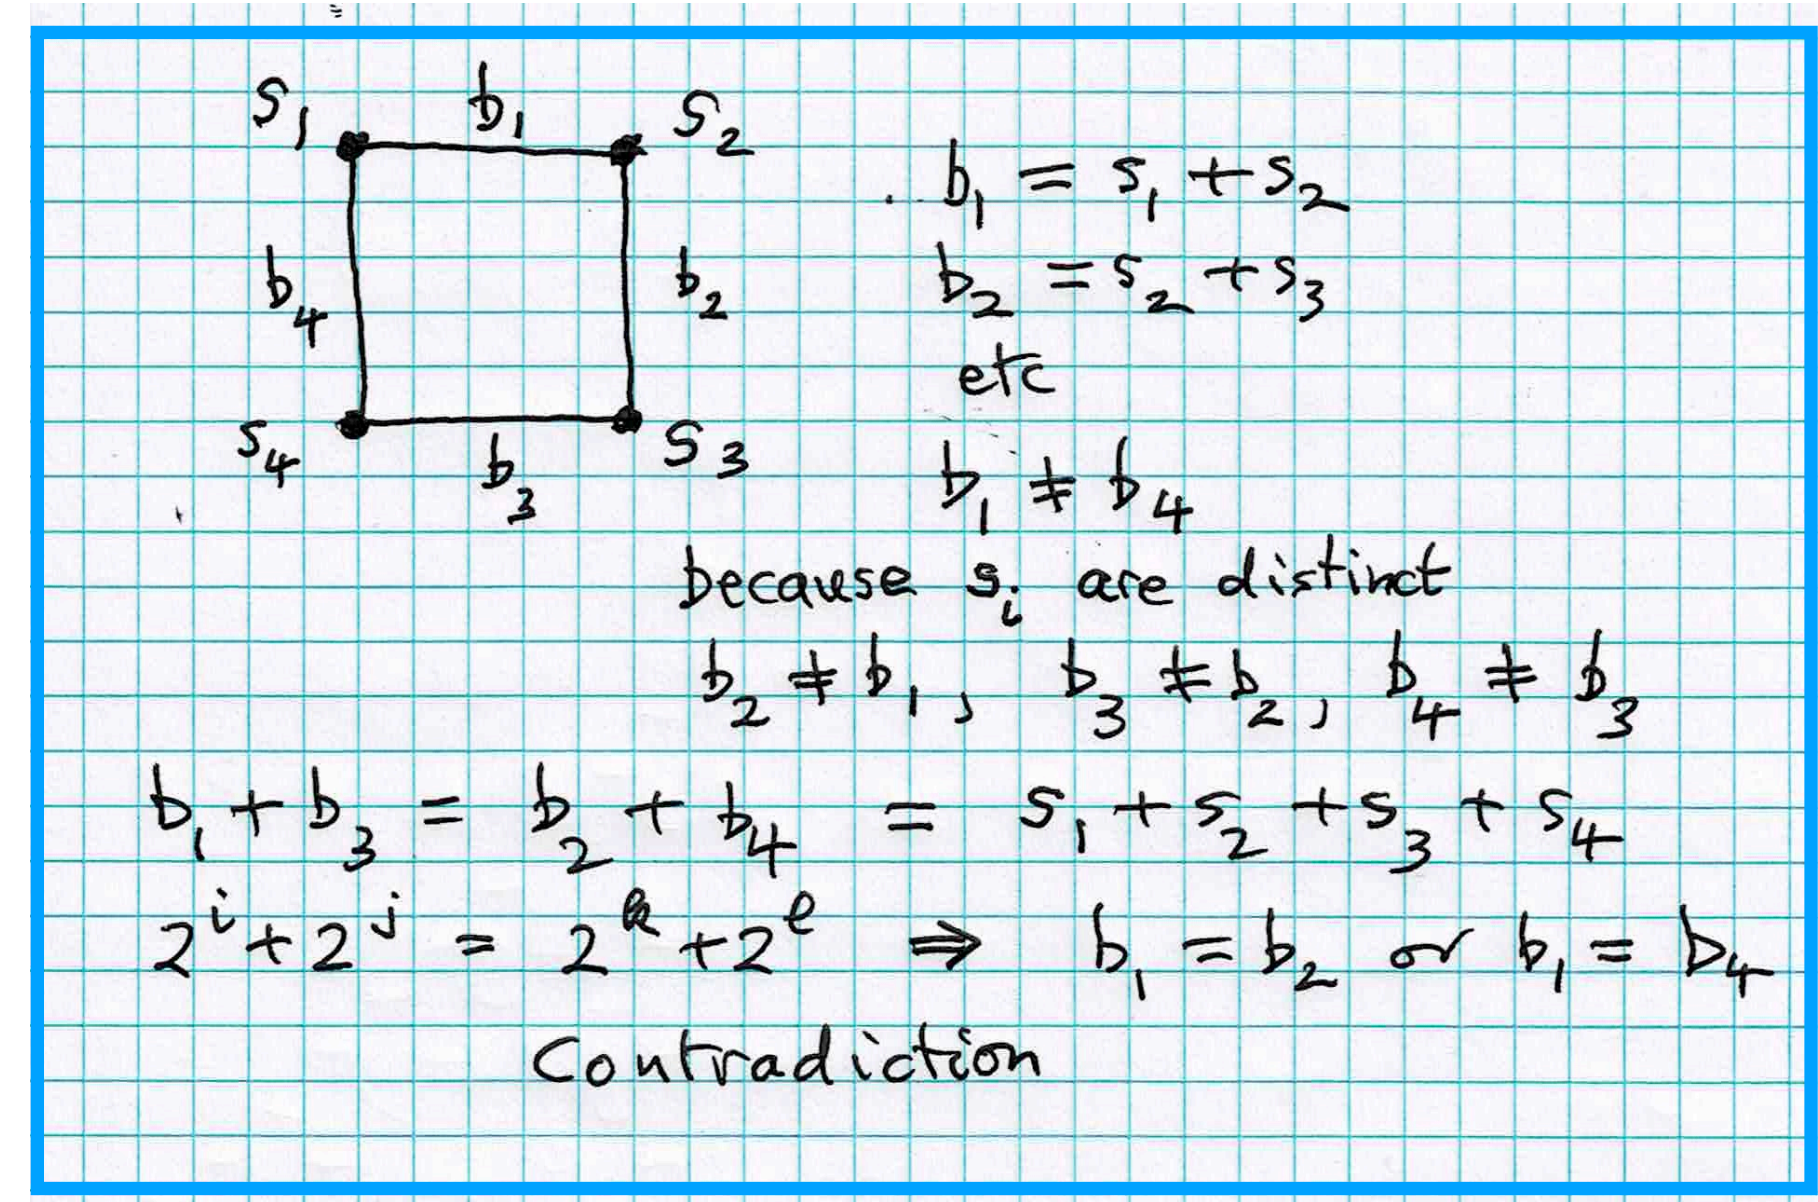 s₁ b₁ s₂
b₁ = s₁ + s₂
b₄ b₂
b₂ = s₂ + s₃
etc
s₄ b₃ s₃
b₁ ≠ b₄
because sᵢ are distinct
b₂ ≠ b₁, b₃ ≠ b₂, b₄ ≠ b₃
b₁ + b₃ = b₂ + b₄ = s₁ + s₂ + s₃ + s₄
2ⁱ + 2ʲ = 2ᵏ + 2ˡ ⇒ b₁ = b₂ or b₁ = b₄
Contradiction